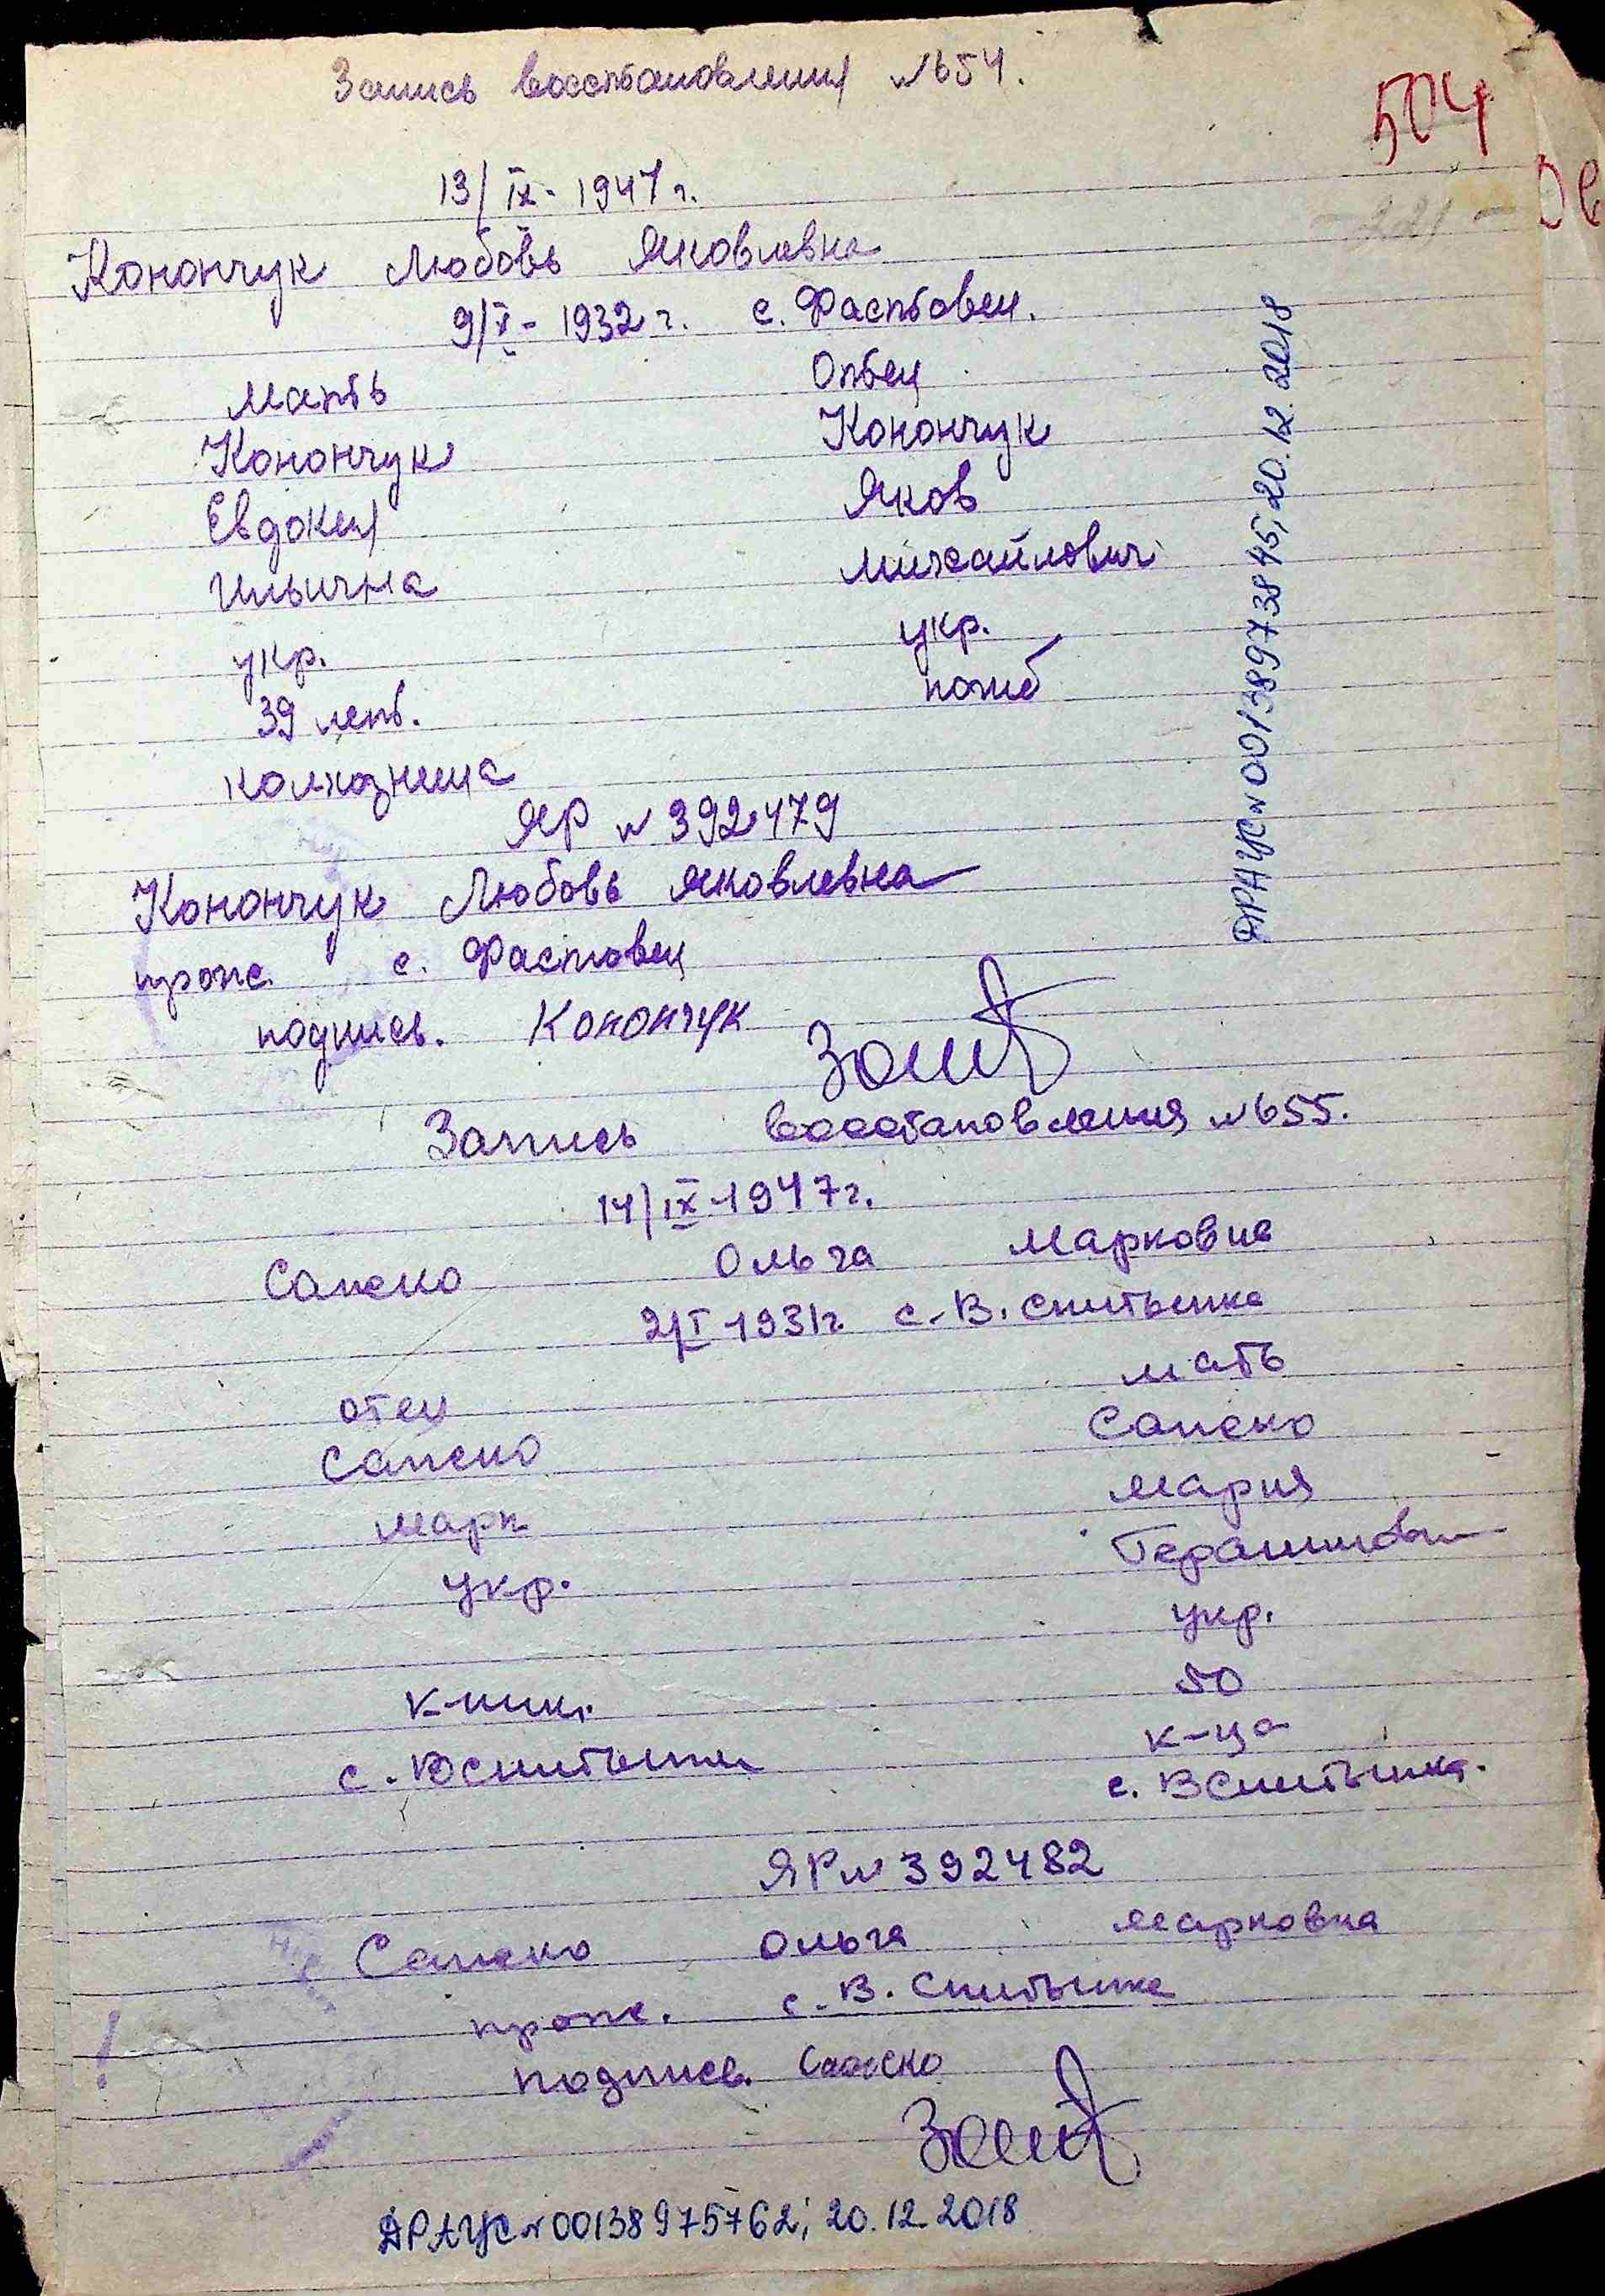 Запись восстановления №654.
504
13/IX-1947г.
-221-
Конончук Любовь Яковлевна
9/V-1932г. с. Фастовец.
Мать Отец
Конончук Конончук
Евдокия Яков
Ильична Михайлович
укр. укр.
39 лет. погиб
колхозница
ЯР № 392479
Конончук Любовь Яковлевна
прож. с. Фастовец
подпись. Конончук
ДРАЦС №00138973845; 20.12.2018
Запись восстановления №655.
14/IX-1947г.
Сапско Ольга Марковна
2/I-1931г с-В. Снитынка
отец мать
Сапско Сапско
Марк Мария
укр. укр.
50
к-ник. к-ца
с. ВСнитынка.
ЯР № 392482
Сапско Ольга Марковна
прож. с-В. Снитынка
подпись. Сапско
ДРАЦС №00138975762; 20.12.2018